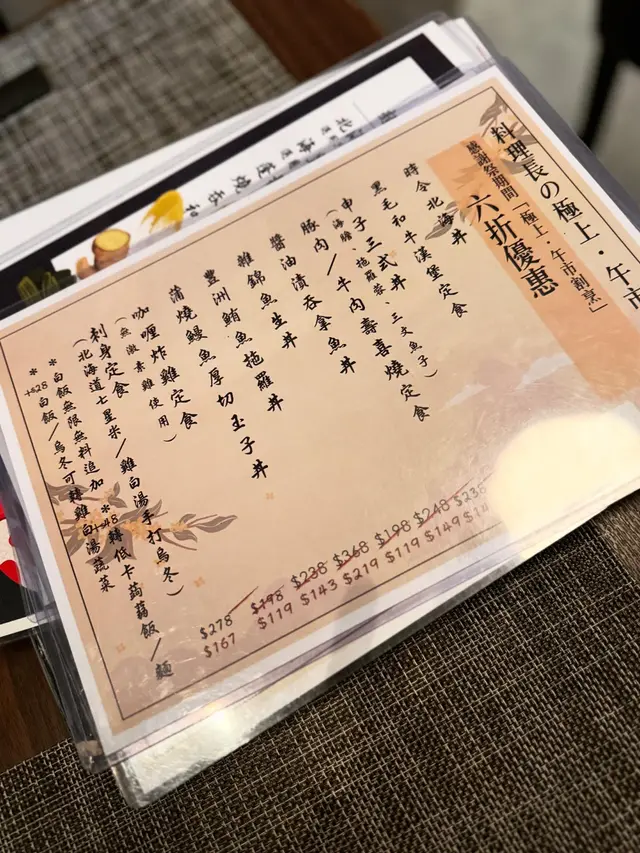 料理長の極上・午市
感謝祭期間「極上・午市割烹」
六折優惠
時令北海丼
黑毛和牛漢堡定食
申子三式丼
（海膽、拖羅蓉、三文魚子）
豚肉/牛肉壽喜燒定食
醬油漬吞拿魚丼
雜錦魚生丼
豐洲鮪魚拖羅丼
蒲燒鰻魚厚切玉子丼
咖喱炸雞定食
（無激素雞使用）
刺身定食
（北海道七星米/雞白湯手打烏冬）
*白飯無限無料追加 *+$48轉低卡蒟蒻飯/麵
*+$28白飯/烏冬可轉雞白湯蔬菜
$278 $198 $238 $368 $198 $248 $238
$167 $119 $143 $219 $119 $149 $14